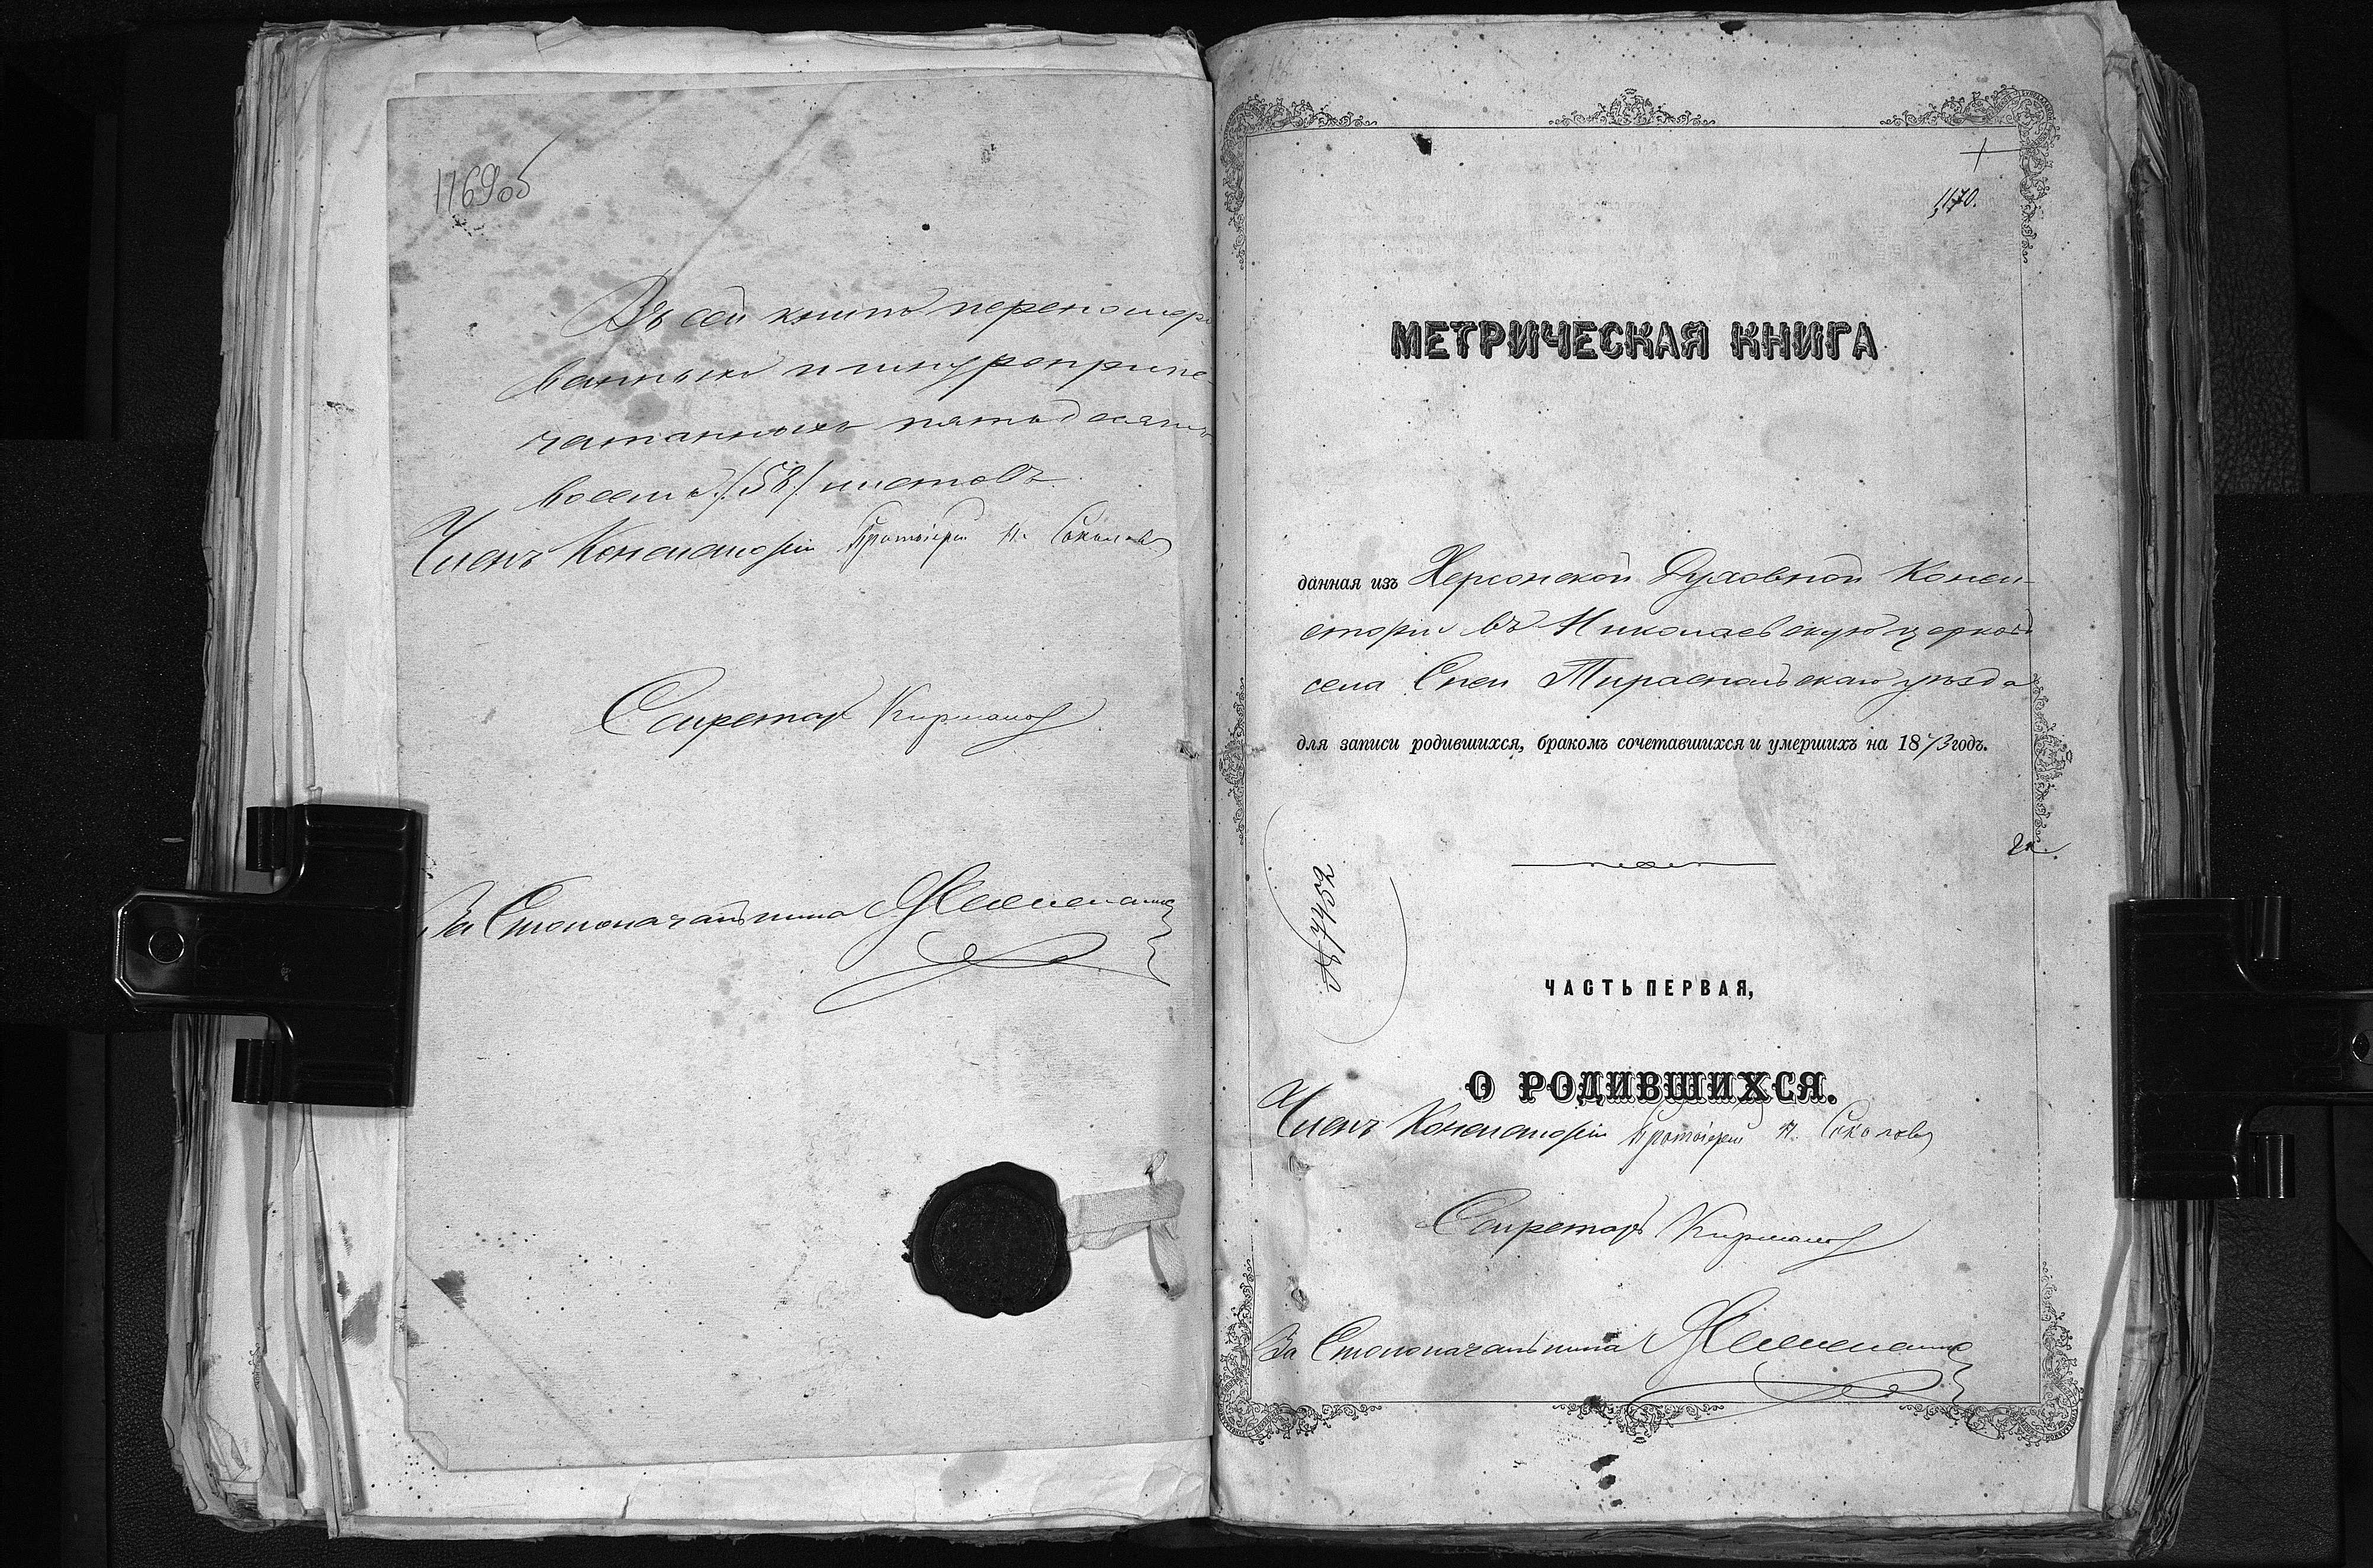 1169об
Въ сей книгѣ перенумеро
ванныхъ и шнуроприпе-
чатанныхъ пятьдесятъ
восемь /58/ листовъ.
Членъ Консисторіи Протоіерей Н. Соколовъ
Секретарь
За Столоначальника
1170.
МЕТРИЧЕСКАЯ КНИГА
данная изъ Херсонской Духовной Конси-
сторіи въ Николаевскую церковь
села Спеи Тираспольскаго уѣзда
для записи родившихся, бракомъ сочетавшихся и умершихъ на 1873 годъ.
№ 7452
ЧАСТЬ ПЕРВАЯ,
О РОДИВШИХСЯ.
Членъ Консисторіи Протоіерей Н. Соколовъ
Секретарь
За Столоначальника